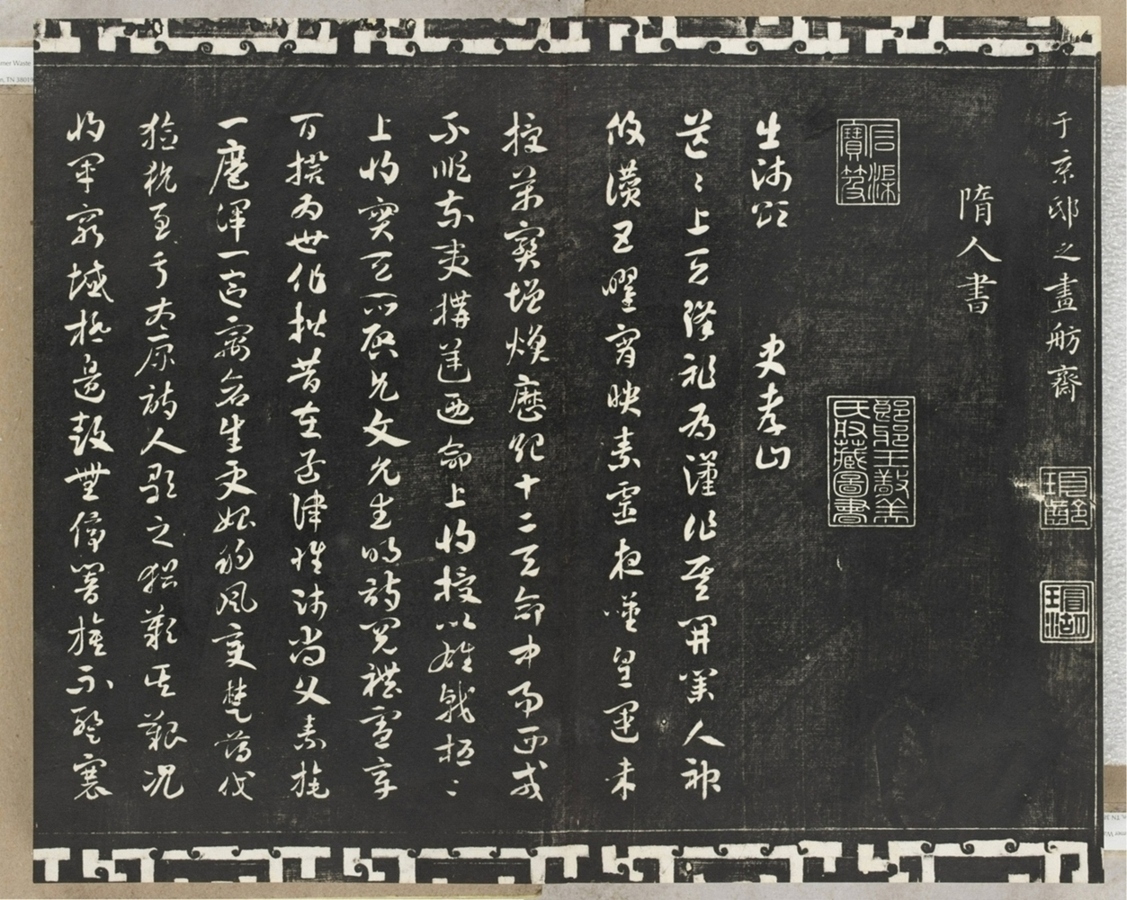 于京邸之畫舫齋
隋人書
石渠寶笈
瑯琊王敬美氏收藏圖書
出師頌 史孝山
茫茫上天降祚為漢作基開業人神
攸讚五曜宵映素靈夜嘆皇運未
授萬寶增煥歷紀十二天命中易西戎
不順東夷構逆迺命上將授以雄戟桓桓
上將實天所啟允文允武明詩閱禮憲章
百揆為世作楷昔在孟津惟師尚父素旄
一麾渾一區宇蒼生更始朔風變楚薄伐
獫狁至于太原詩人歌之猶歎其艱況
將軍窮域極邊鼓無停響旌不蹔褰